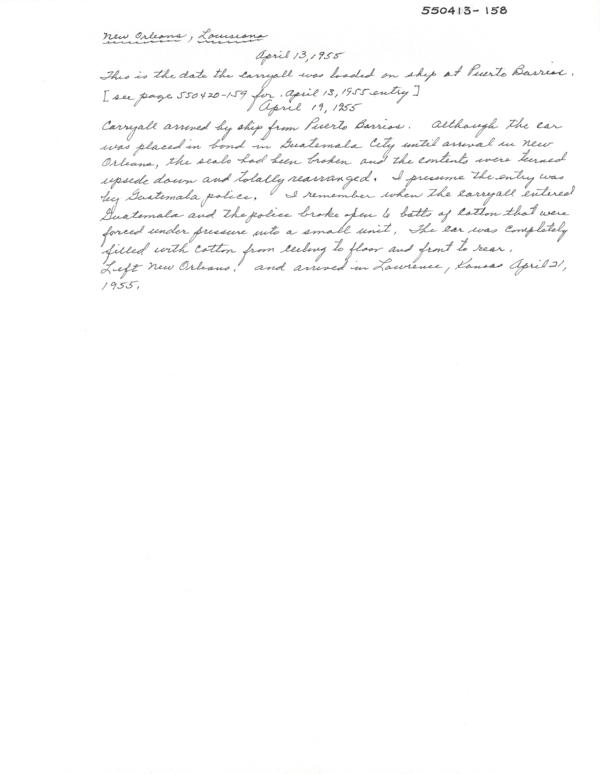 550413-158
New Orleans, Louisiana
April 13, 1955
This is the date the carryall was loaded on ship at Puerto Barrios.
[see page 550420-159 for April 13, 1955 entry]
April 19, 1955
Carryall arrived by ship from Puerto Barrios. Although the car
was placed in bond in Guatemala City until arrival in New
Orleans, the seals had been broken and the contents were turned
upside down and totally rearranged. I presume the entry was
by Guatemala police. I remember when the carryall entered
Guatemala and the police broke open 6 batts of cotton that were
forced under pressure into a small unit. The car was completely
filled with cotton from ceiling to floor and front to rear.
Left New Orleans. and arrived in Lawrence, Kansas April 21,
1955.